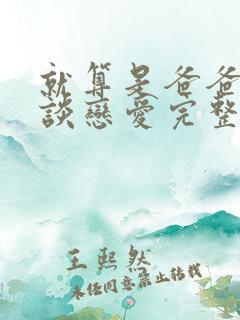 就算是爸爸
談戀愛完整
王熙然
未经同意禁止转载